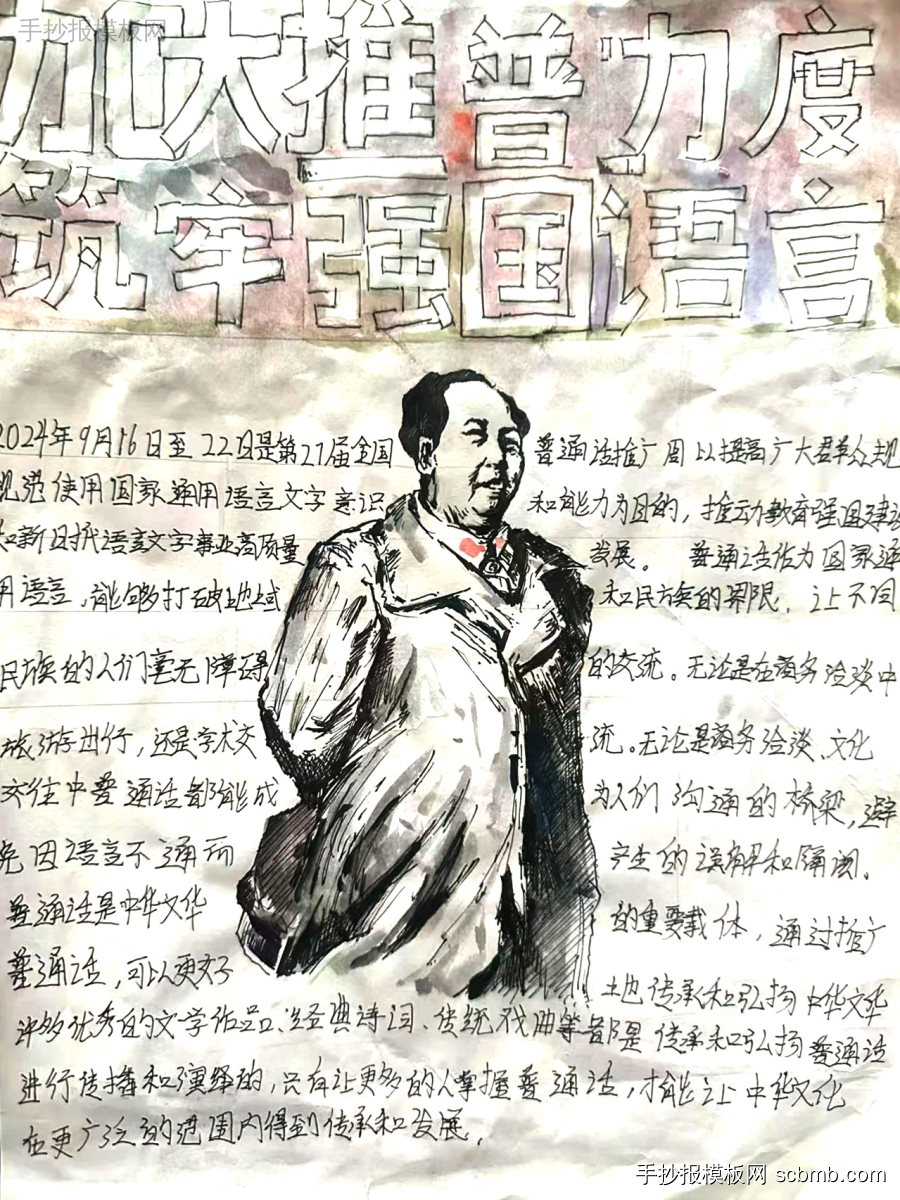 手抄报模板网
加大推普力度
筑牢强国语言
2024年9月16日至22日是第27届全国普通话推广周以提高广大群众规
规范使用国家通用语言文字意识和能力为目的，推动教育强国建设
和新时代语言文字事业高质量发展。普通话作为国家通
用语言，能够打破地域和民族的界限，让不同
民族的人们毫无障碍的交流。无论是在商务洽谈中
旅游出行，还是学术交流。无论是商务洽谈、文化
交往中普通话都能成为人们沟通的桥梁，避
免因语言不通而产生的误解和隔阂。
普通话是中华文华的重要载体，通过推广
普通话，可以更好地传承和弘扬中华文华
许多优秀的文学作品、经典诗词、传统戏曲等都是传承和弘扬普通话
进行传播和演绎的，只有让更多的人掌握普通话，才能让中华文化
在更广泛的范围内得到传承和发展。
手抄报模板网 scbmb.com